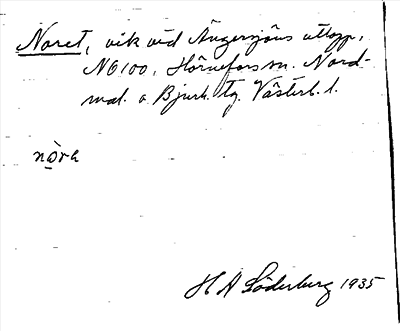 Noret, vik vid Ängersjöns utlopp,
N6100, Hörnefors sn. Nord-
mal. o. Bjurh. tg. Västerb. l.
nòra
H A Söderberg 1935